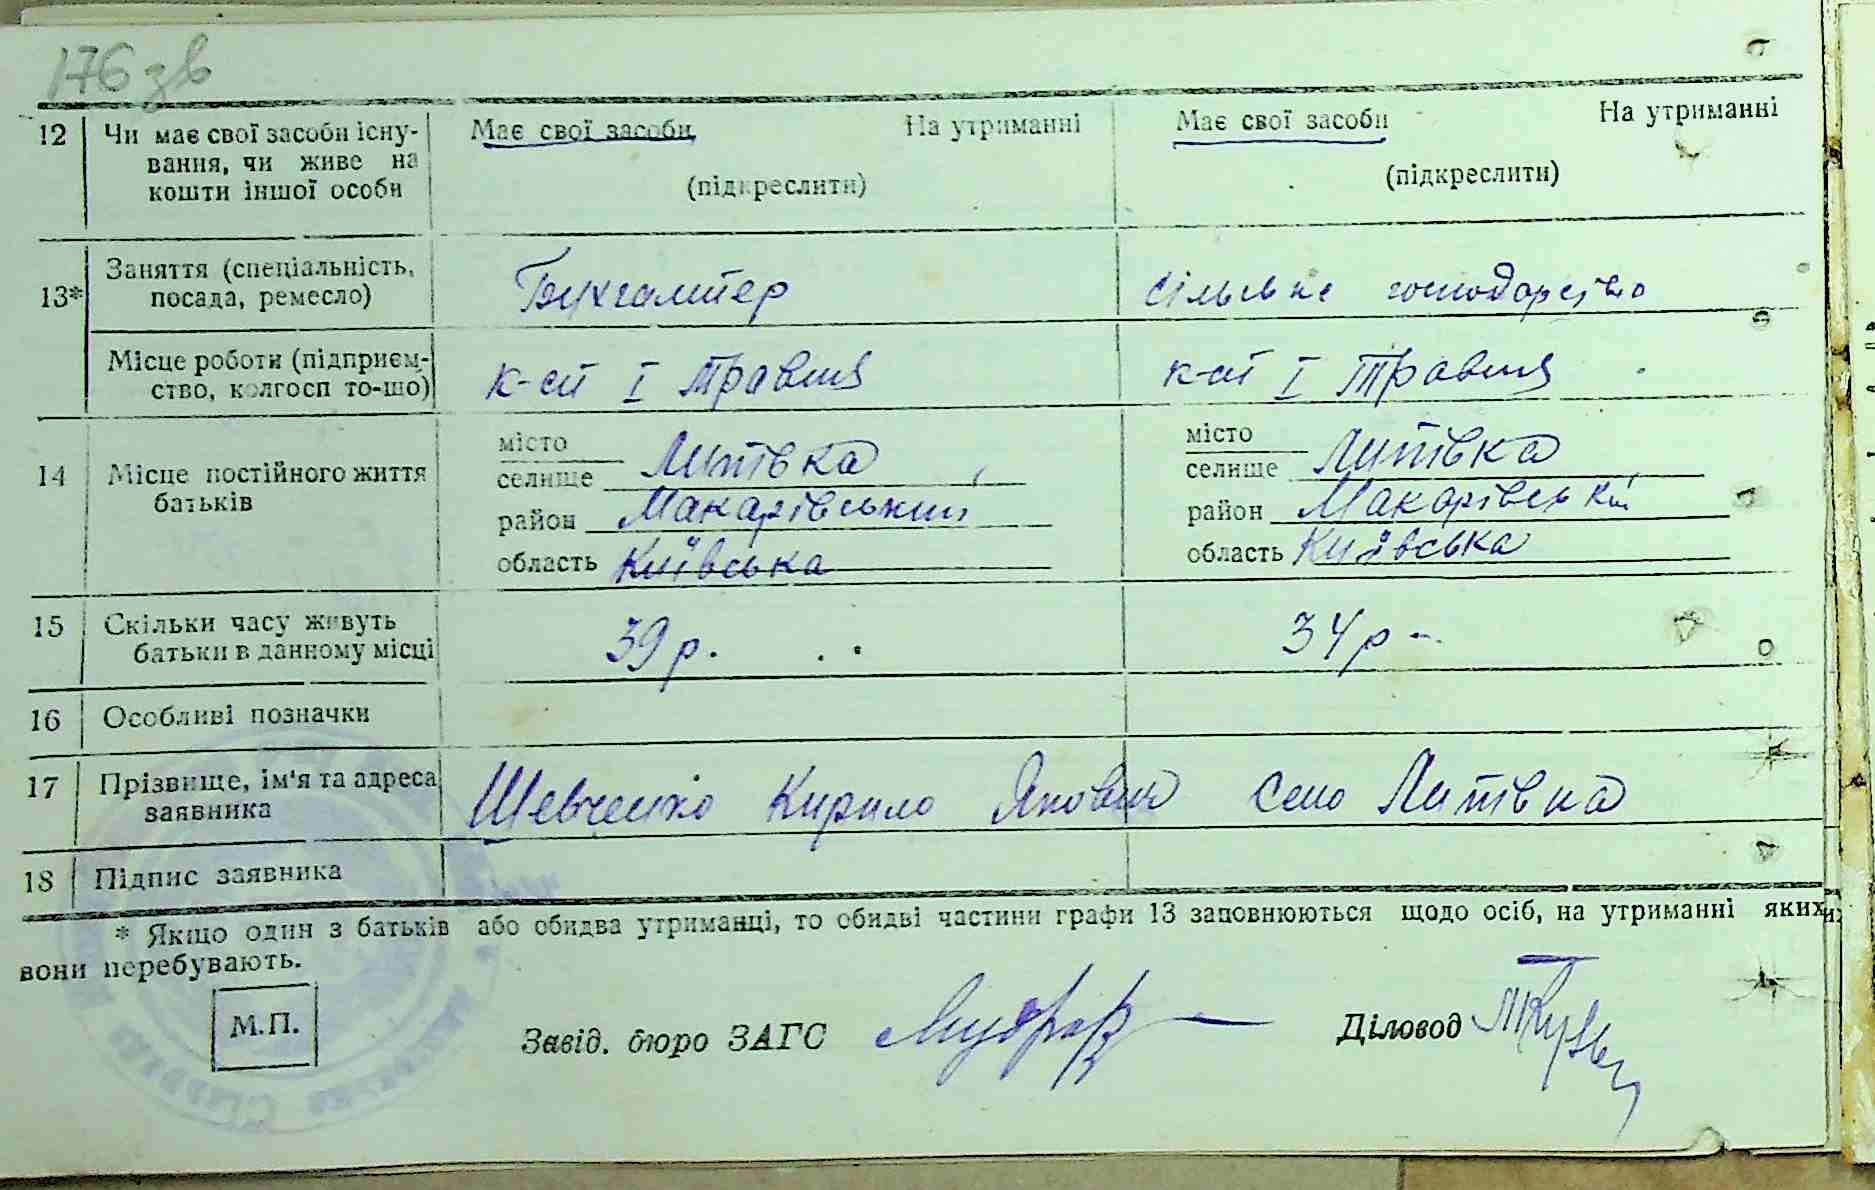 176 зв
12 Чи має свої засоби існу- Має свої засоби На утриманні Має свої засоби На утриманні
вання, чи живе на
кошти іншої особи (підкреслити) (підкреслити)
13* Заняття (спеціальність, посада, ремесло) Бухгалтер Сільське господарство
Місце роботи (підприєм-
ство, колгосп то-що) к-сп І Травня к-сп І Травня
місто місто
14 Місце постійного життя селище Липівка селище Липівка
батьків район Макарівський район Макарівський
область Київська область Київська
15 Скільки часу живуть
батьки в данному місці 39 р. 34 р.
16 Особливі позначки
17 Прізвище, ім'я та адреса
заявника Шевченко Кирило Якович Село Липівка
18 Підпис заявника
* Якщо один з батьків або обидва утриманці, то обидві частини графи 13 заповнюються щодо осіб, на утриманні яких
вони перебувають.
М.П.
Завід. бюро ЗАГС Діловод